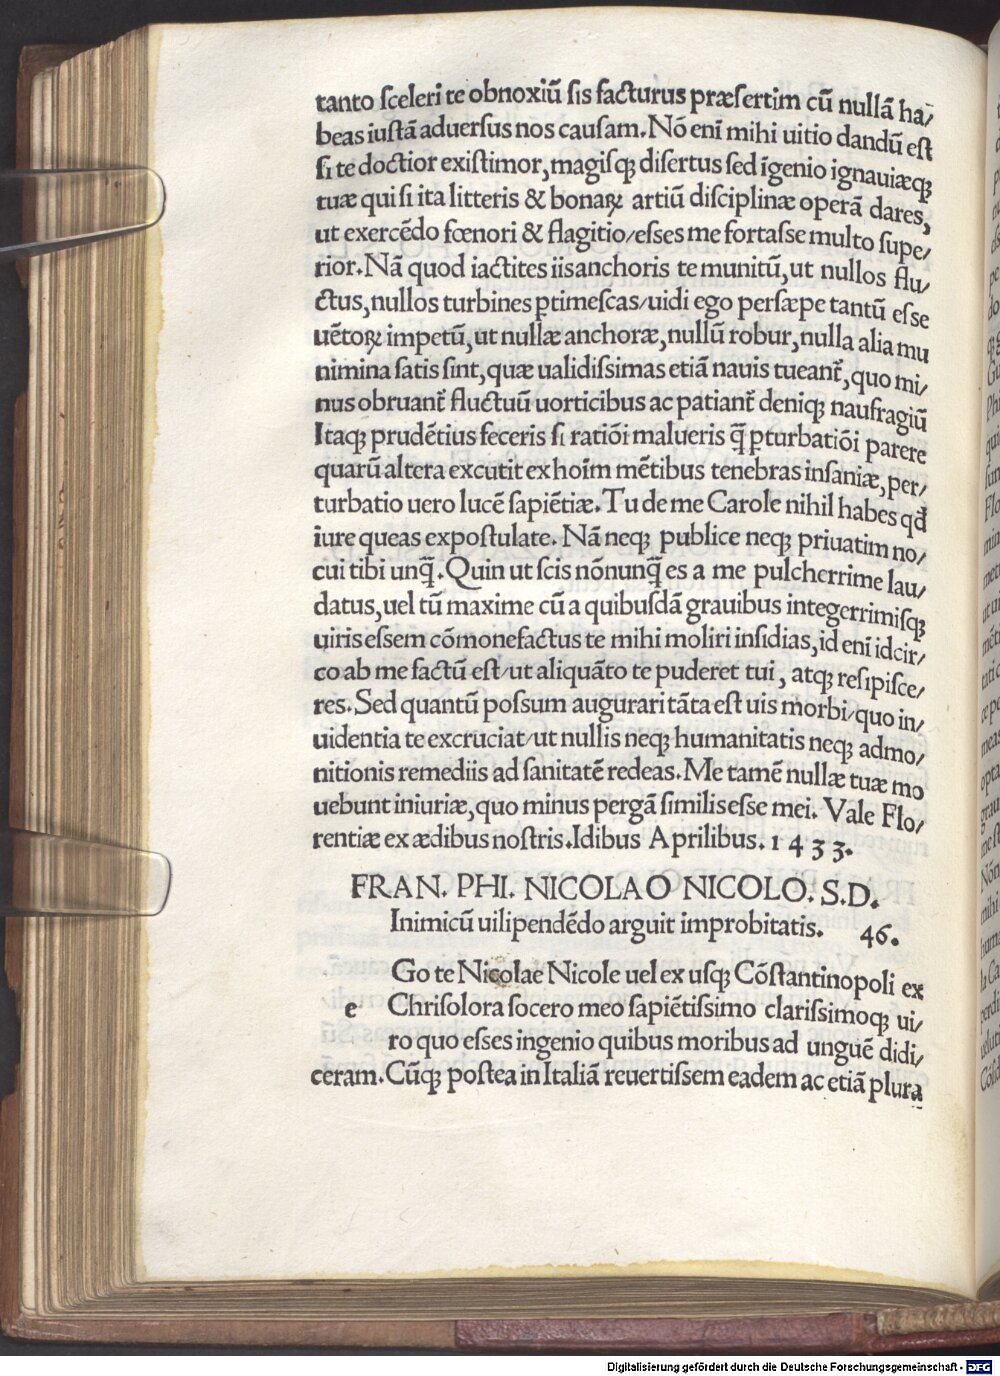 tanto ſceleri te obnoxiū ſis facturus præſertim cū nullā ha/
beas iuſtā aduerſus nos cauſam. Nō enī mihi uitio dandū eſt
ſi te doctior exiſtimor, magiſqꝫ diſertus ſed īgenio ignauiæqꝫ
tuæ qui ſi ita litteris & bonaꝝ artiū diſciplinæ operā dares,
ut exercēdo fœnori & flagitio/eſſes me fortaſſe multo ſupe/
rior. Nā quod iactites iis anchoris te munitū, ut nullos flu/
ctus, nullos turbines ꝑtimeſcas/uidi ego perſæpe tantū eſſe
uētoꝝ impetū, ut nullæ anchoræ, nullū robur, nulla alia mu
nimina ſatis ſint, quæ ualidiſſimas etiā nauis tueant̄, quo mi/
nus obruant̄ fluctuū uorticibus ac patiant̄ deniqꝫ naufragiū
Itaqꝫ prudētius feceris ſi ratiōi malueris q̄̃ ꝑturbatiōi parere
quarū altera excutit ex hoīm mētibus tenebras inſaniæ, per/
turbatio uero lucē ſapiētiæ. Tu de me Carole nihil habes qđ
iure queas expoſtulate. Nā neqꝫ publice neqꝫ priuatim no/
cui tibi unq̄̃. Quin ut ſcis nōnunq̄̃ es a me pulcherrime lau/
datus, uel tū maxime cū a quibuſdā grauibus integerrimiſqꝫ
uiris eſſem cōmonefactus te mihi moliri inſidias, id enī idcir/
co ab me factū eſt/ut aliquāto te puderet tui, atqꝫ reſipiſce/
res. Sed quantū poſſum augurari tāta eſt uis morbi/quo in/
uidentia te excruciat/ut nullis neqꝫ humanitatis neqꝫ admo/
nitionis remediis ad ſanitatē redeas. Me tamē nullæ tuæ mo
uebunt iniuriæ, quo minus pergā ſimilis eſſe mei. Vale Flo/
rentiæ ex ædibus noſtris. Idibus Aprilibus. 1433.
FRAN. PHI. NICOLAO NICOLO. S.D.
Inimicū uilipendēdo arguit improbitatis. 46.
Go te Nicolae Nicole uel ex uſqꝫ Cōſtantinopoli ex
e Chriſolora ſocero meo ſapiētiſſimo clariſſimoqꝫ ui/
ro quo eſſes ingenio quibus moribus ad unguē didi/
ceram. Cūqꝫ poſtea in Italiā reuertiſſem eadem ac etiā plura
Digitalisierung gefördert durch die Deutsche Forschungsgemeinschaft - DFG